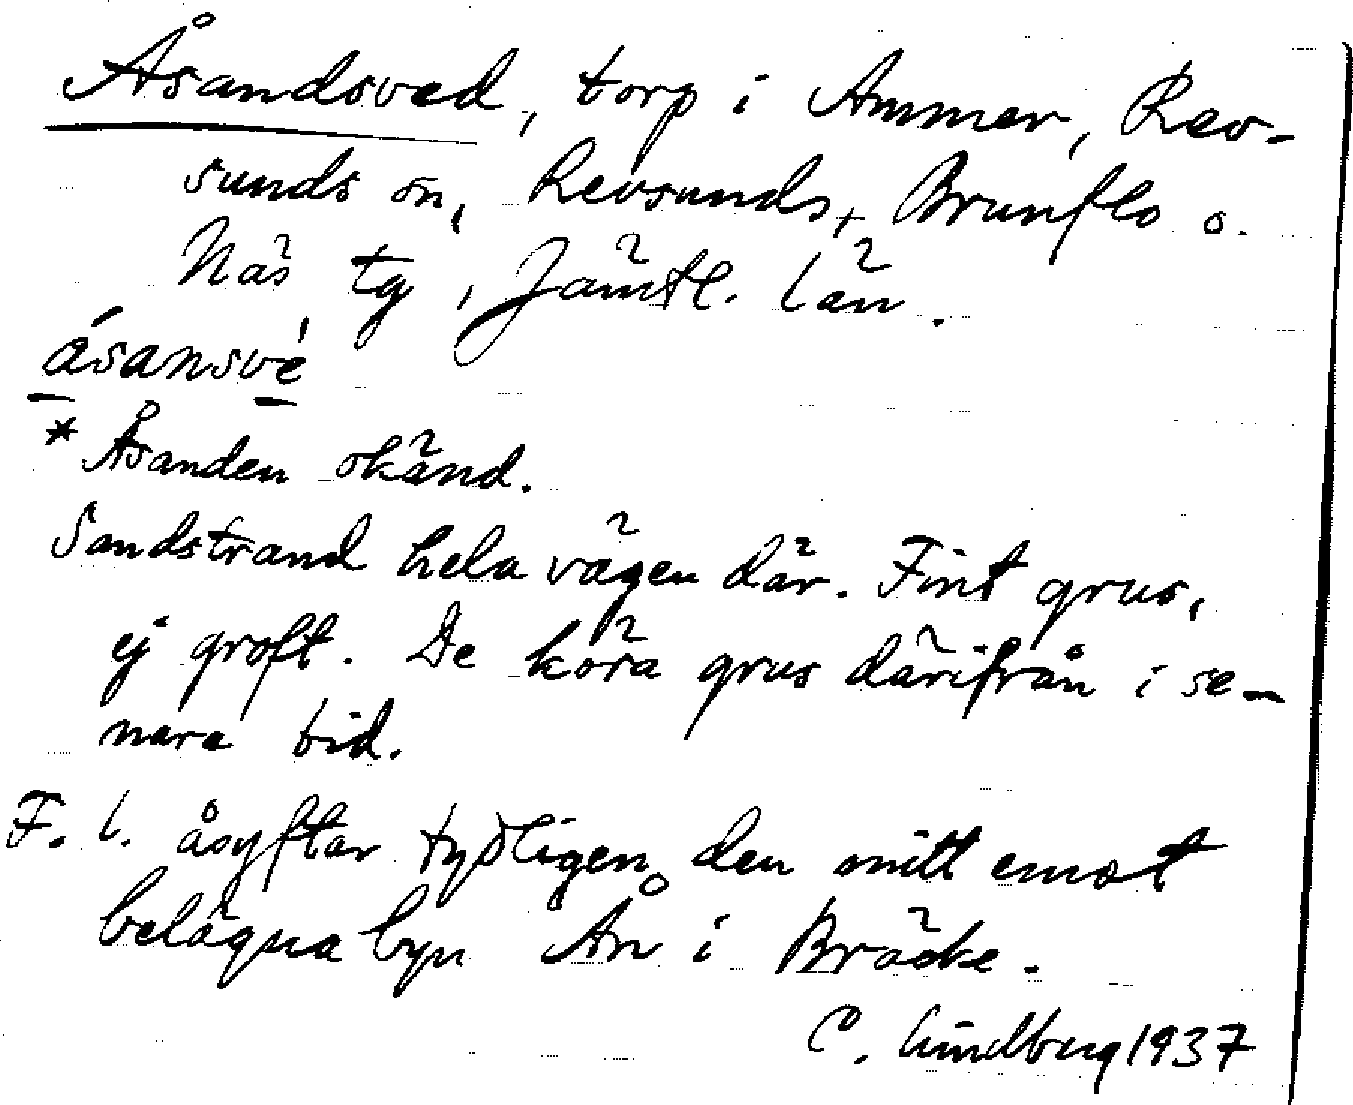 Åsandsved, torp i Ammer, Rev-
sunds sn, Revsunds, Brunflo o.
Näs tg, Jämtl. län.
ásansvé
* Åsanden okänd.
Sandstrand hela vägen där. Fint grus,
ej groft. De köra grus därifrån i se-
nare tid.
F. l. åsyftar tydligen den mitt emot
belägna byn Ån i Bräcke.
C. Lindberg 1937